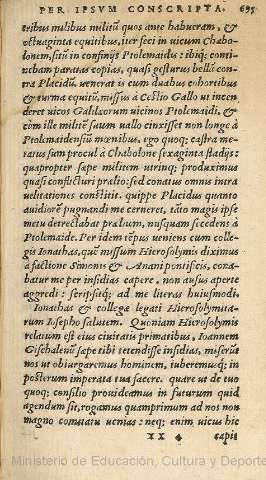 PER IPSVM CONSCRIPTA. 695
tribus milibus militũ quos ante habueram, &
octuaginta equitibus, iter feci in uicum Chabo-
lonem, sitũ in confinijs Ptolemaidis: ibiq; conti-
nebam paratas copias, quasi gesturus bellũ con-
tra Placidũ. uenerat is cum duabus cohortibus
& turma equitũ, missus à Cestio Gallo ut incen-
deret uicos Galilæorum uicinos Ptolemaidi, &
cùm ille militẽ suum uallo cinxisset non longe à
Ptolemaidensiũ mœnibus. ego quoq; castra me-
tatus sum procul à Chabolone sexaginta stadijs:
quapropter sæpe militem utrinq; produximus
quasi conflicturi prælio: sed conatus omnis intra
uelitationes constitit. quippe Placidus quanto
auidiorẽ pugnandi me cerneret, tãto magis ipse
metu detrectabat prælium, nusquam secedens à
Ptolemaide. Per idem tẽpus ueniens cum colle-
gis Ionathas, quẽ missum Hierosolymis diximus
à factione Simonis & Anani pontificis, cona-
batur me per insidias capere, non ausus aperte
aggredi: scripsitq; ad me literas huiusmodi.
Ionathas & collegæ legati Hierosolymita-
rum Iosepho salutem. Quoniam Hierosolymis
relatum est eius ciuitatis primatibus, Ioannem
Gischalenũ sæpe tibi tetendisse insidias, miserũt
nos ut obiurgaremus hominem, iuberemusq; in
posterum imperata tua facere. quare ut de tuo
quoq; consilio prouideamus in futurum quid
agendum sit, rogamus quamprimum ad nos non
magno comitatu uenias: neq; enim uicus hic
XX 4 capit
Ministerio de Educación, Cultura y Deporte